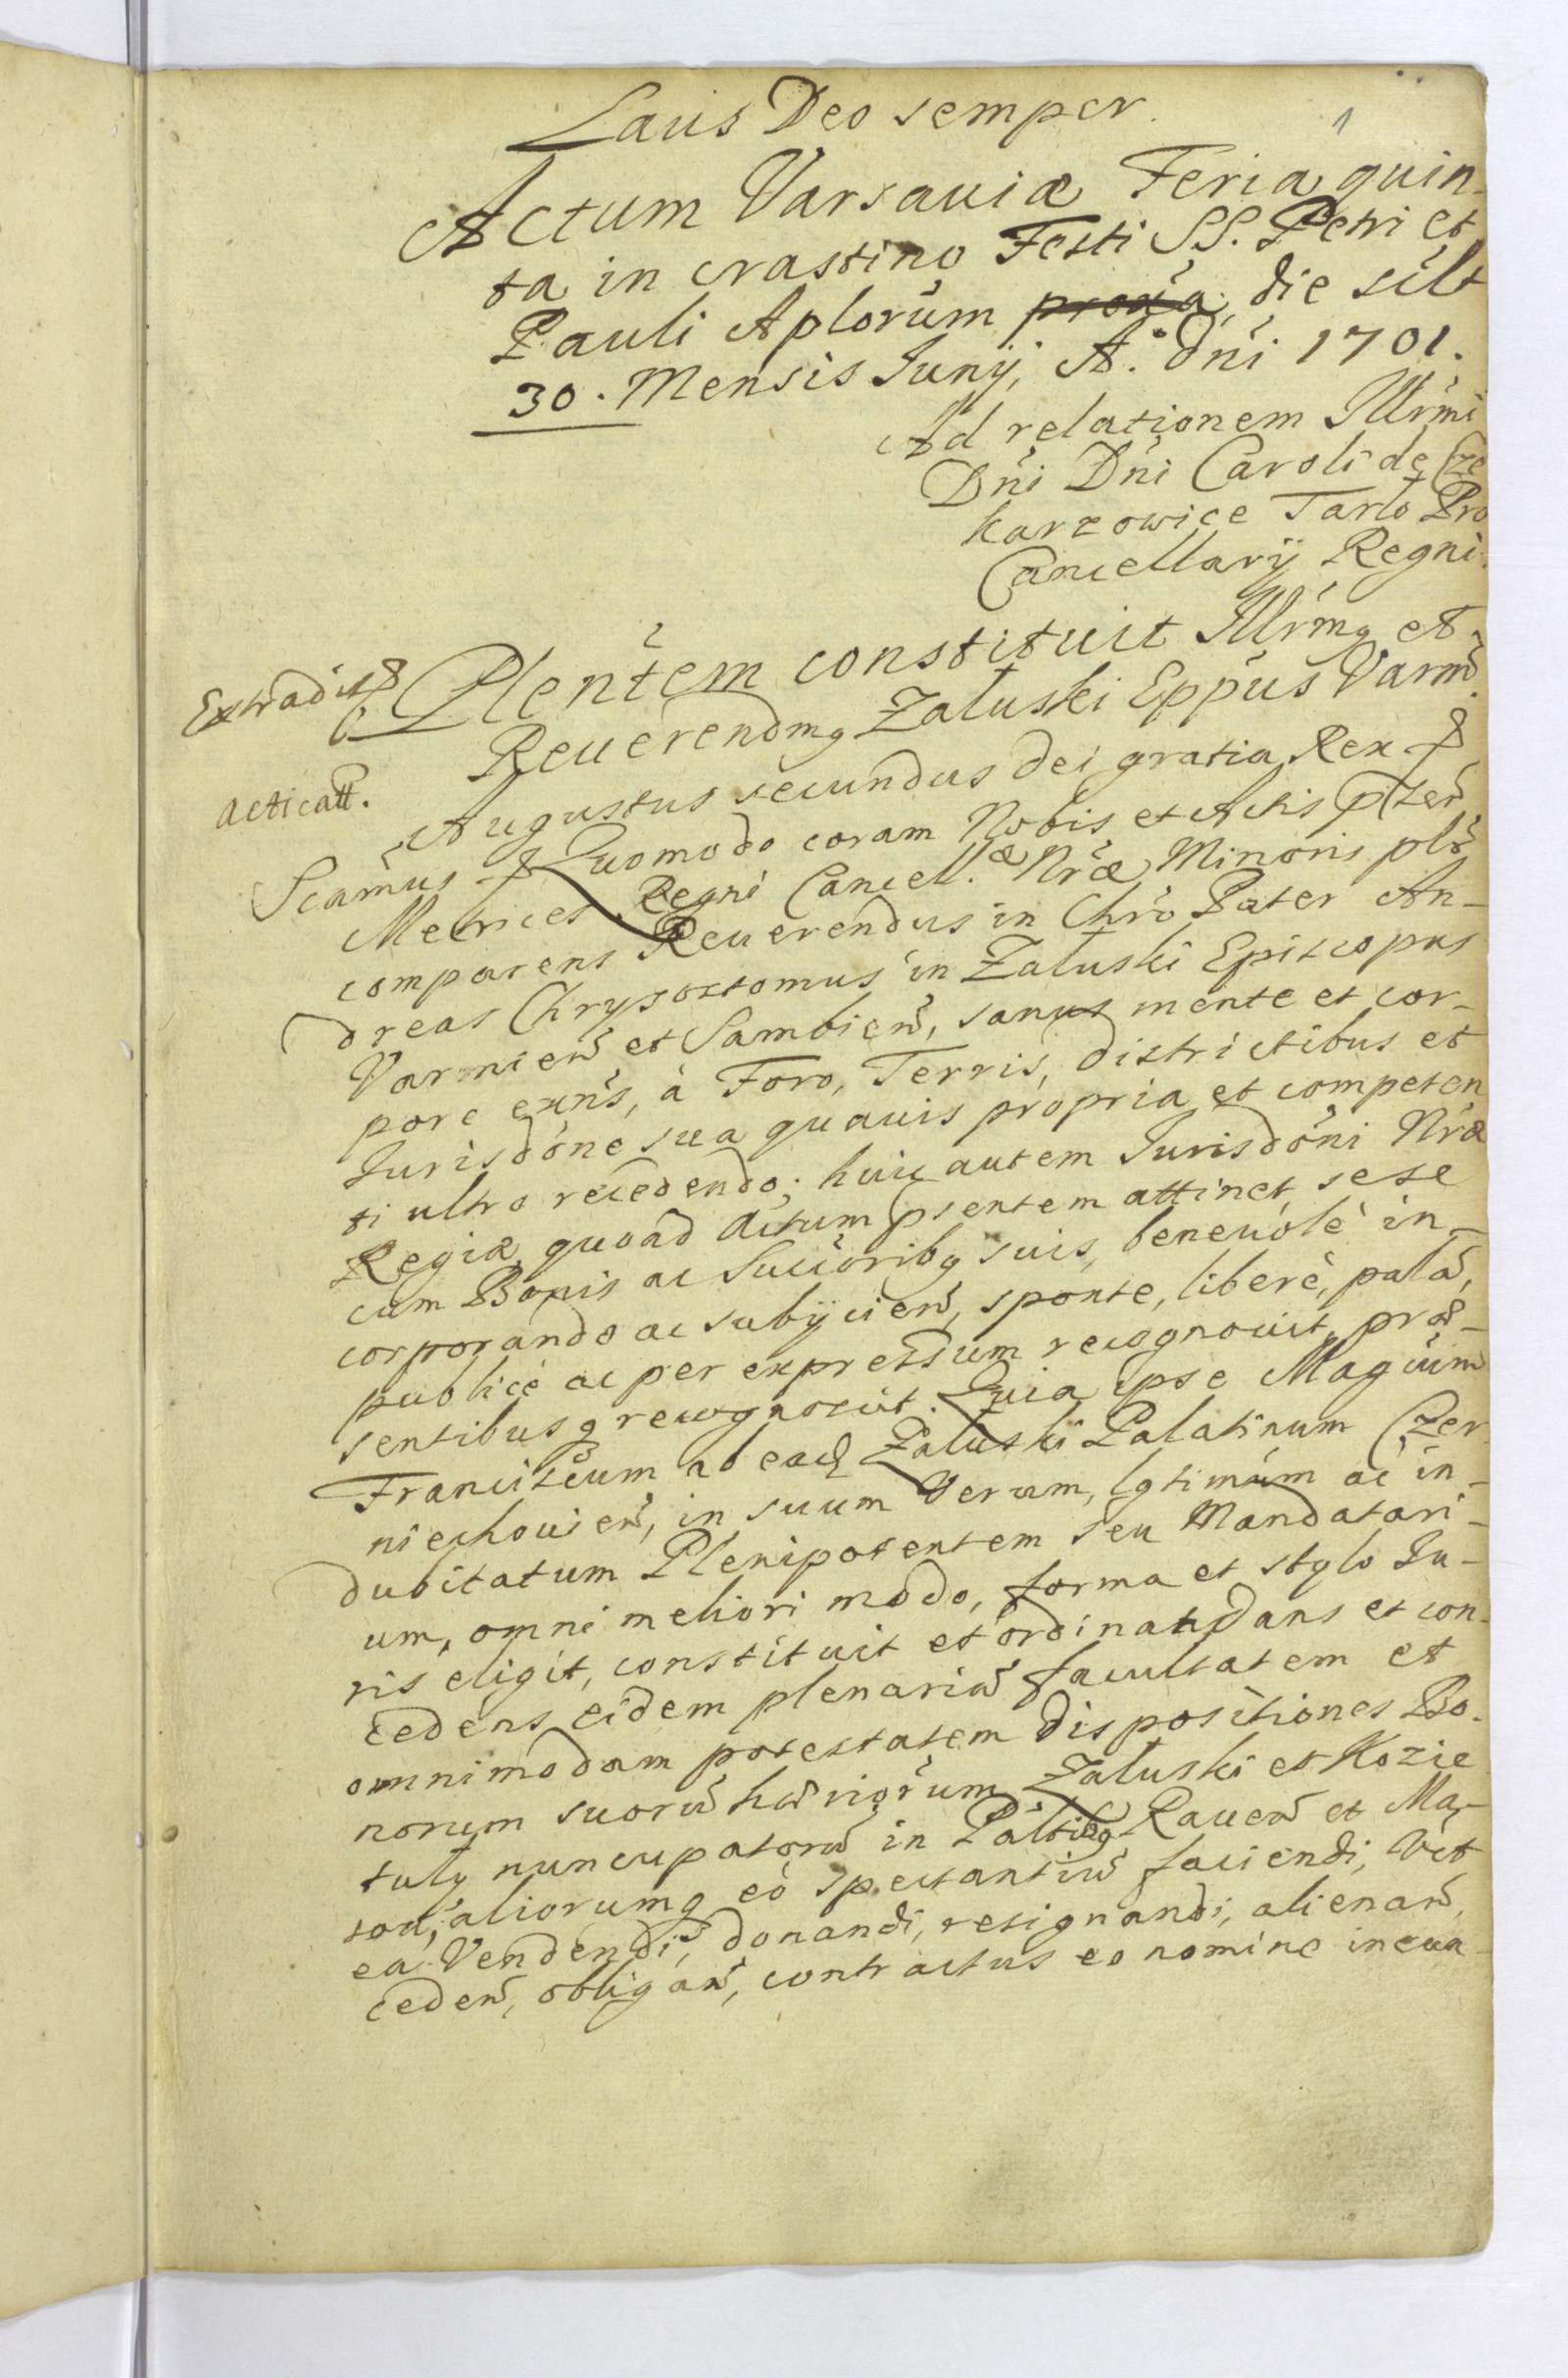 Laus Deo semper.
1
Actum Varsaviæ Feria quin-
ta in crastino Festi S.S. Petri et
Pauli Aplorum proxia die scilt
30. Mensis Junÿ, A.° dni 1701.
Ad relationem Illrmi
Dni Dni Caroli de Cze
karzowice Tarło Pro
Cancellarÿ Regni.
Extradit
Plentem constituit Illrmq et
Reuerendmq Załuski Eppus Varm̃.
acticatt.
Augustus secundus dei gratia Rex
Scamus Quomodo coram Nobis et Actis pñtem
Metrices Regni Cancell.æ Nræ Minoris plr
comparens Reuerendus in Chro Pater An-
dreas Chrysostomus in Załuski Episcopus
Varmień et Sambień, sanus mente et cor-
pore exns, à Foro, Terris, districtibus et
Jurisdone sua quauis propria et competen
ti ultro recedendo; huic autem Jurisdoni Nræ
Regiæ quoad Actum psentem attinet, sese
cum Bonis ac Succoribq suis, beneuole in-
corporando ac subÿcień, sponte, liberè, pala,
publicè ac per expressum recognouit, præ-
sentibusq recognoscit. Quia ipse Magcum
Franciscum ab eadֽ Załuski Palatinum Czer
niechouień, in suum Verum, lgtimum ac in-
dubitatum Plenipotentem seu Mandatari-
um, omni meliori modo, forma et stylo Ju-
ris eligit, constituit et ordinat, dans et con-
cedens eidem plenariã facultatem et
omnimodam potestatem dispositiones Bo-
norum suorũ hæriorum Załuski et Kozie
tuły nuncupatorũ in Paltibq Raueñ et Ma-
soũ, aliorumq eò spectantiũ faciendi, Vet
ea Vendendi, donandi, resignandi, alienañ,
cedeñ, obligañ, contractus eo nomine ineun